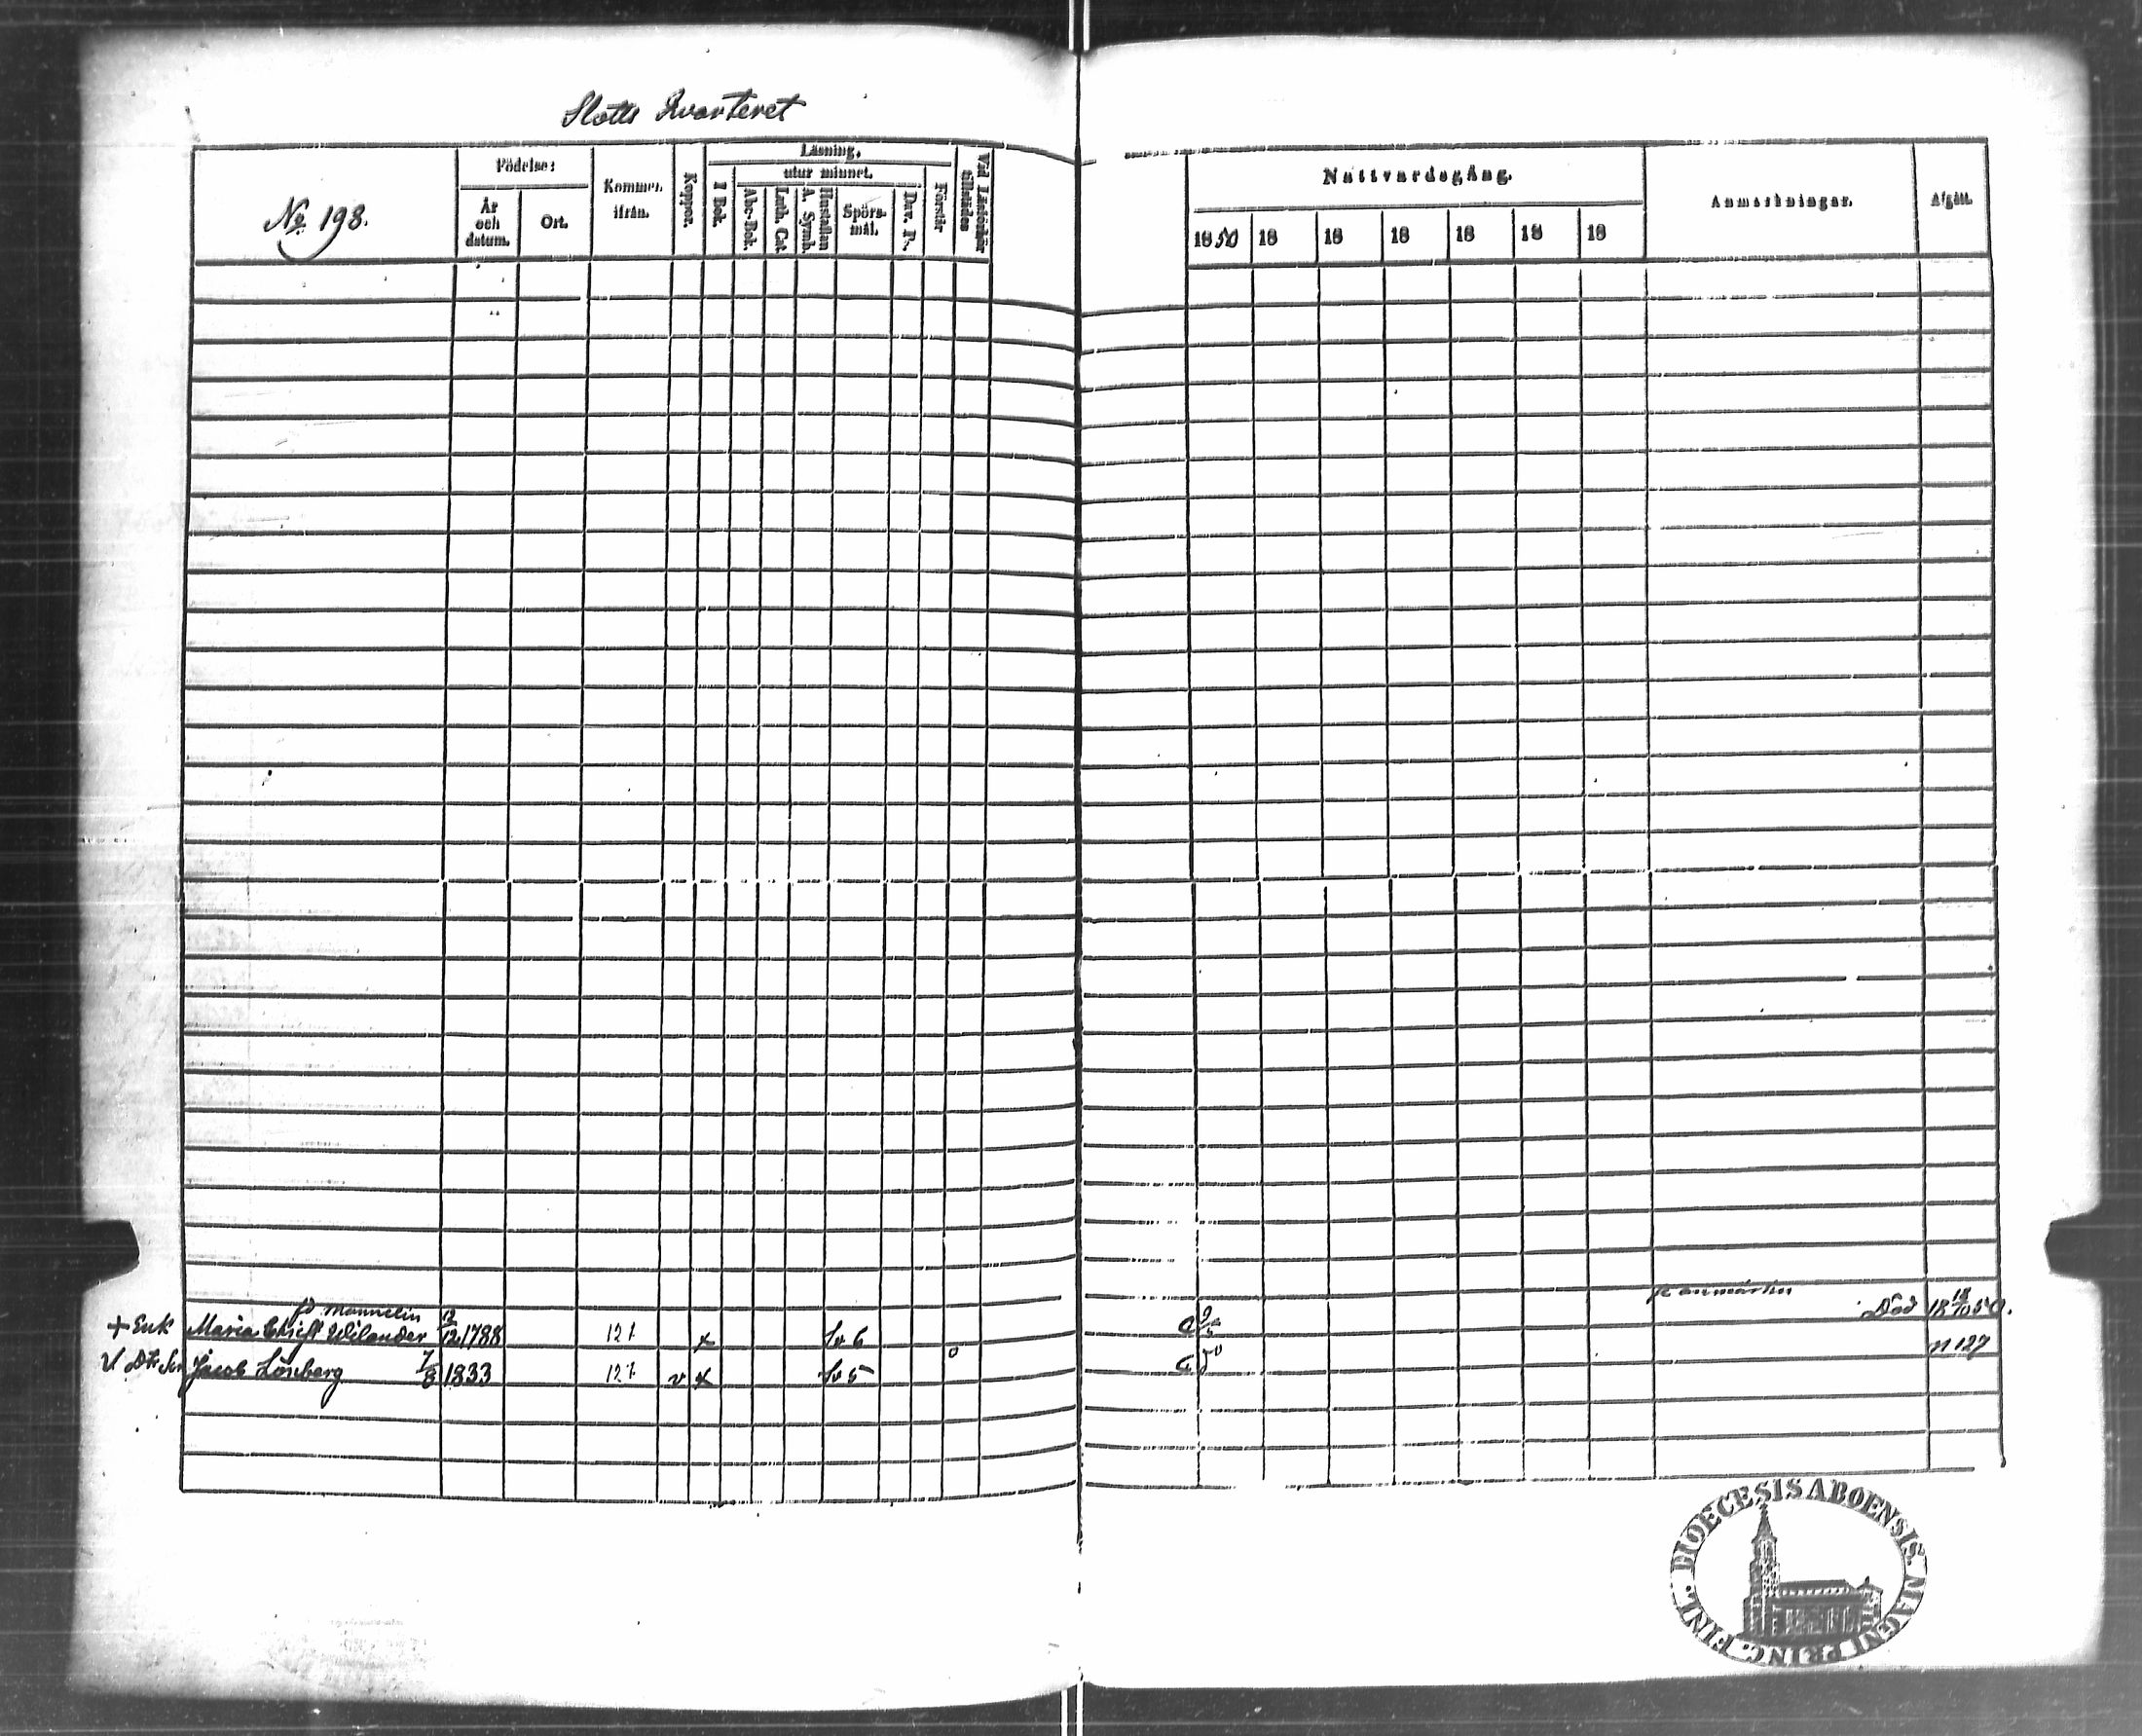 Slotts Qvarteret
No 198.
Födelse:
År och datum.
Ort.
Kommer ifrån.
Koppor.
Läsning.
I Bok.
utur minnet.
Abc-Bok.
Luth. Cat.
A. Symb.
Hustaflan
Spörsmål.
Dav. Ps.
Förstår
Vid Läsförhör tillstädes
Nattvardsgång.
1850 18 18 18 18 18 18
Anmärkningar.
Afgått.
fd Mannelin
+ Enk Maria Christ Wilander 12/12 1788 127 x Sv 6 Död 18 18/10 50.
V Dtr Son Jacob Lönberg 7/8 1833 127 v x Sv 5 n 127
DIOECESIS ABOENSIS. MAGNI PRINC. FINL.